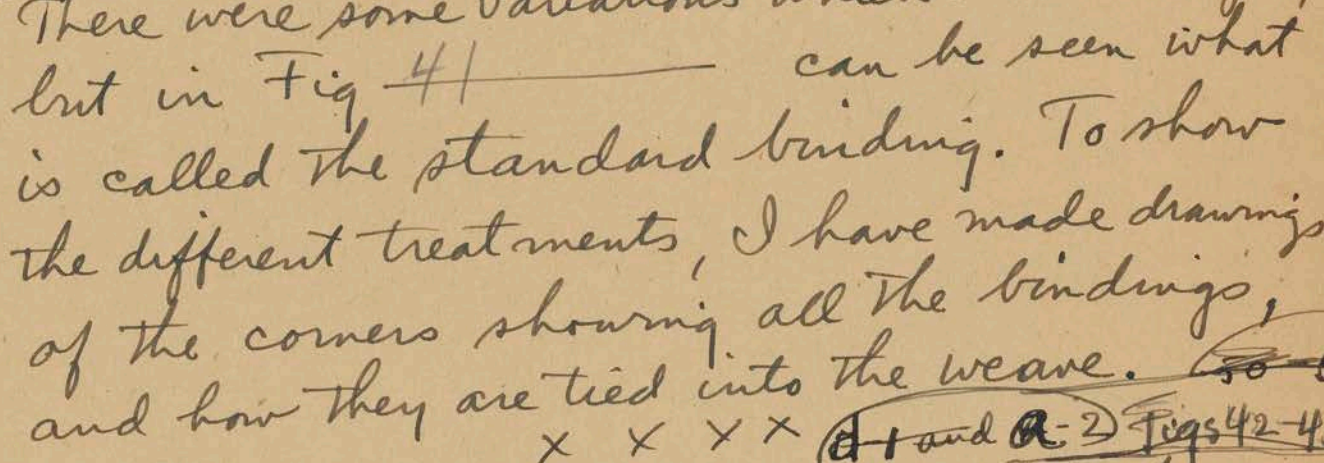 There were some
but in Fig 41 can be seen what
is called the standard binding. To show
the different treatments, I have made drawings
of the corners showing all the bindings,
and how they are tied into the weave.
x x x x d 1 and a-2 Figs 42-4